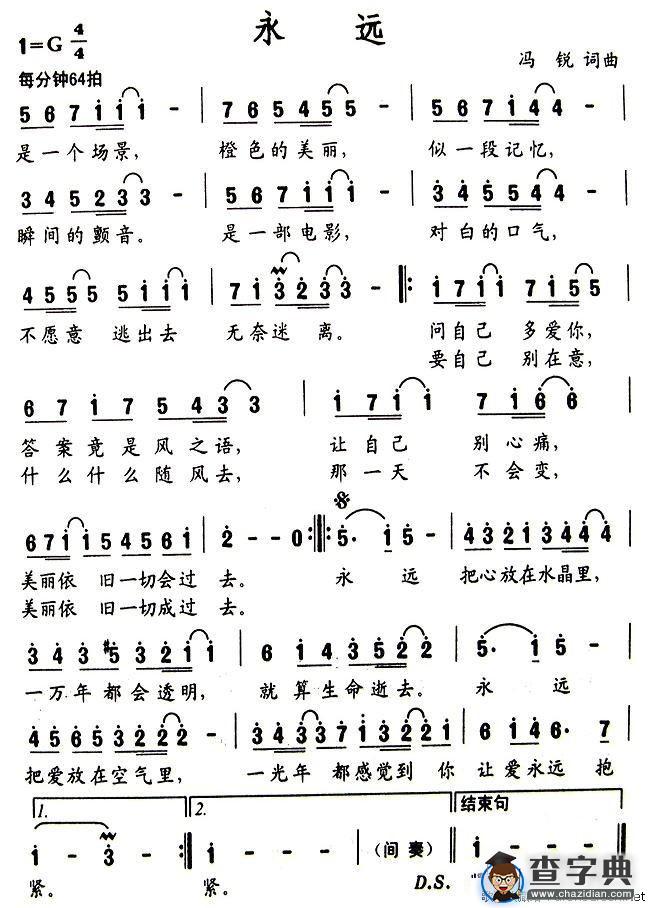 永 远
1=G 4/4
冯 锐 词曲
每分钟64拍
5 6 7 1 1 1 - 7 6 5 4 5 5 - 5 6 7 1 4 -
是一个场景, 橙色的美丽, 似一段记忆,
3 4 5 2 3 3 - 5 6 7 1 1 1 - 3 4 5 5 5 -
瞬间的颤音。 是一部电影, 对白的口气,
4 5 5 5 5 1 1 1 7 1 3 2 3 3 - 1 7 1 1 7 1 5 5
不愿意 逃出去 无奈迷 离。 问自己 多爱你,
要自己 别在意,
6 7 1 7 5 4 3 3 1 7 1 1 7 1 6 6
答案竟是风之语, 让自己 别心痛,
什么什么随风去, 那一天 不会变,
6 7 1 1 5 4 5 6 1 2 - - 0 5. 1 5 - 4 3 2 1 3 4 4 4
美丽依 旧一切会过 去。 永 远 把心放在水晶里,
美丽依 旧一切成过 去。
3 4 3 #5 3 2 1 1 6 1 4 3 5 2 2 5. 1 5 -
一万年都会透明, 就算生命逝去。 永 远
4 5 6 5 3 2 2 2 - 3 4 3 3 7 1 3 2 2 1 6 1 4 6. 7
把爱放在空气里, 一光年 都感觉到 你 让爱永远 抱
1. 2. 结束句
1 - 3 - 1 - - (间 奏) 1 - -
紧。 紧。 D.S.
查字典
www.chazidian.com